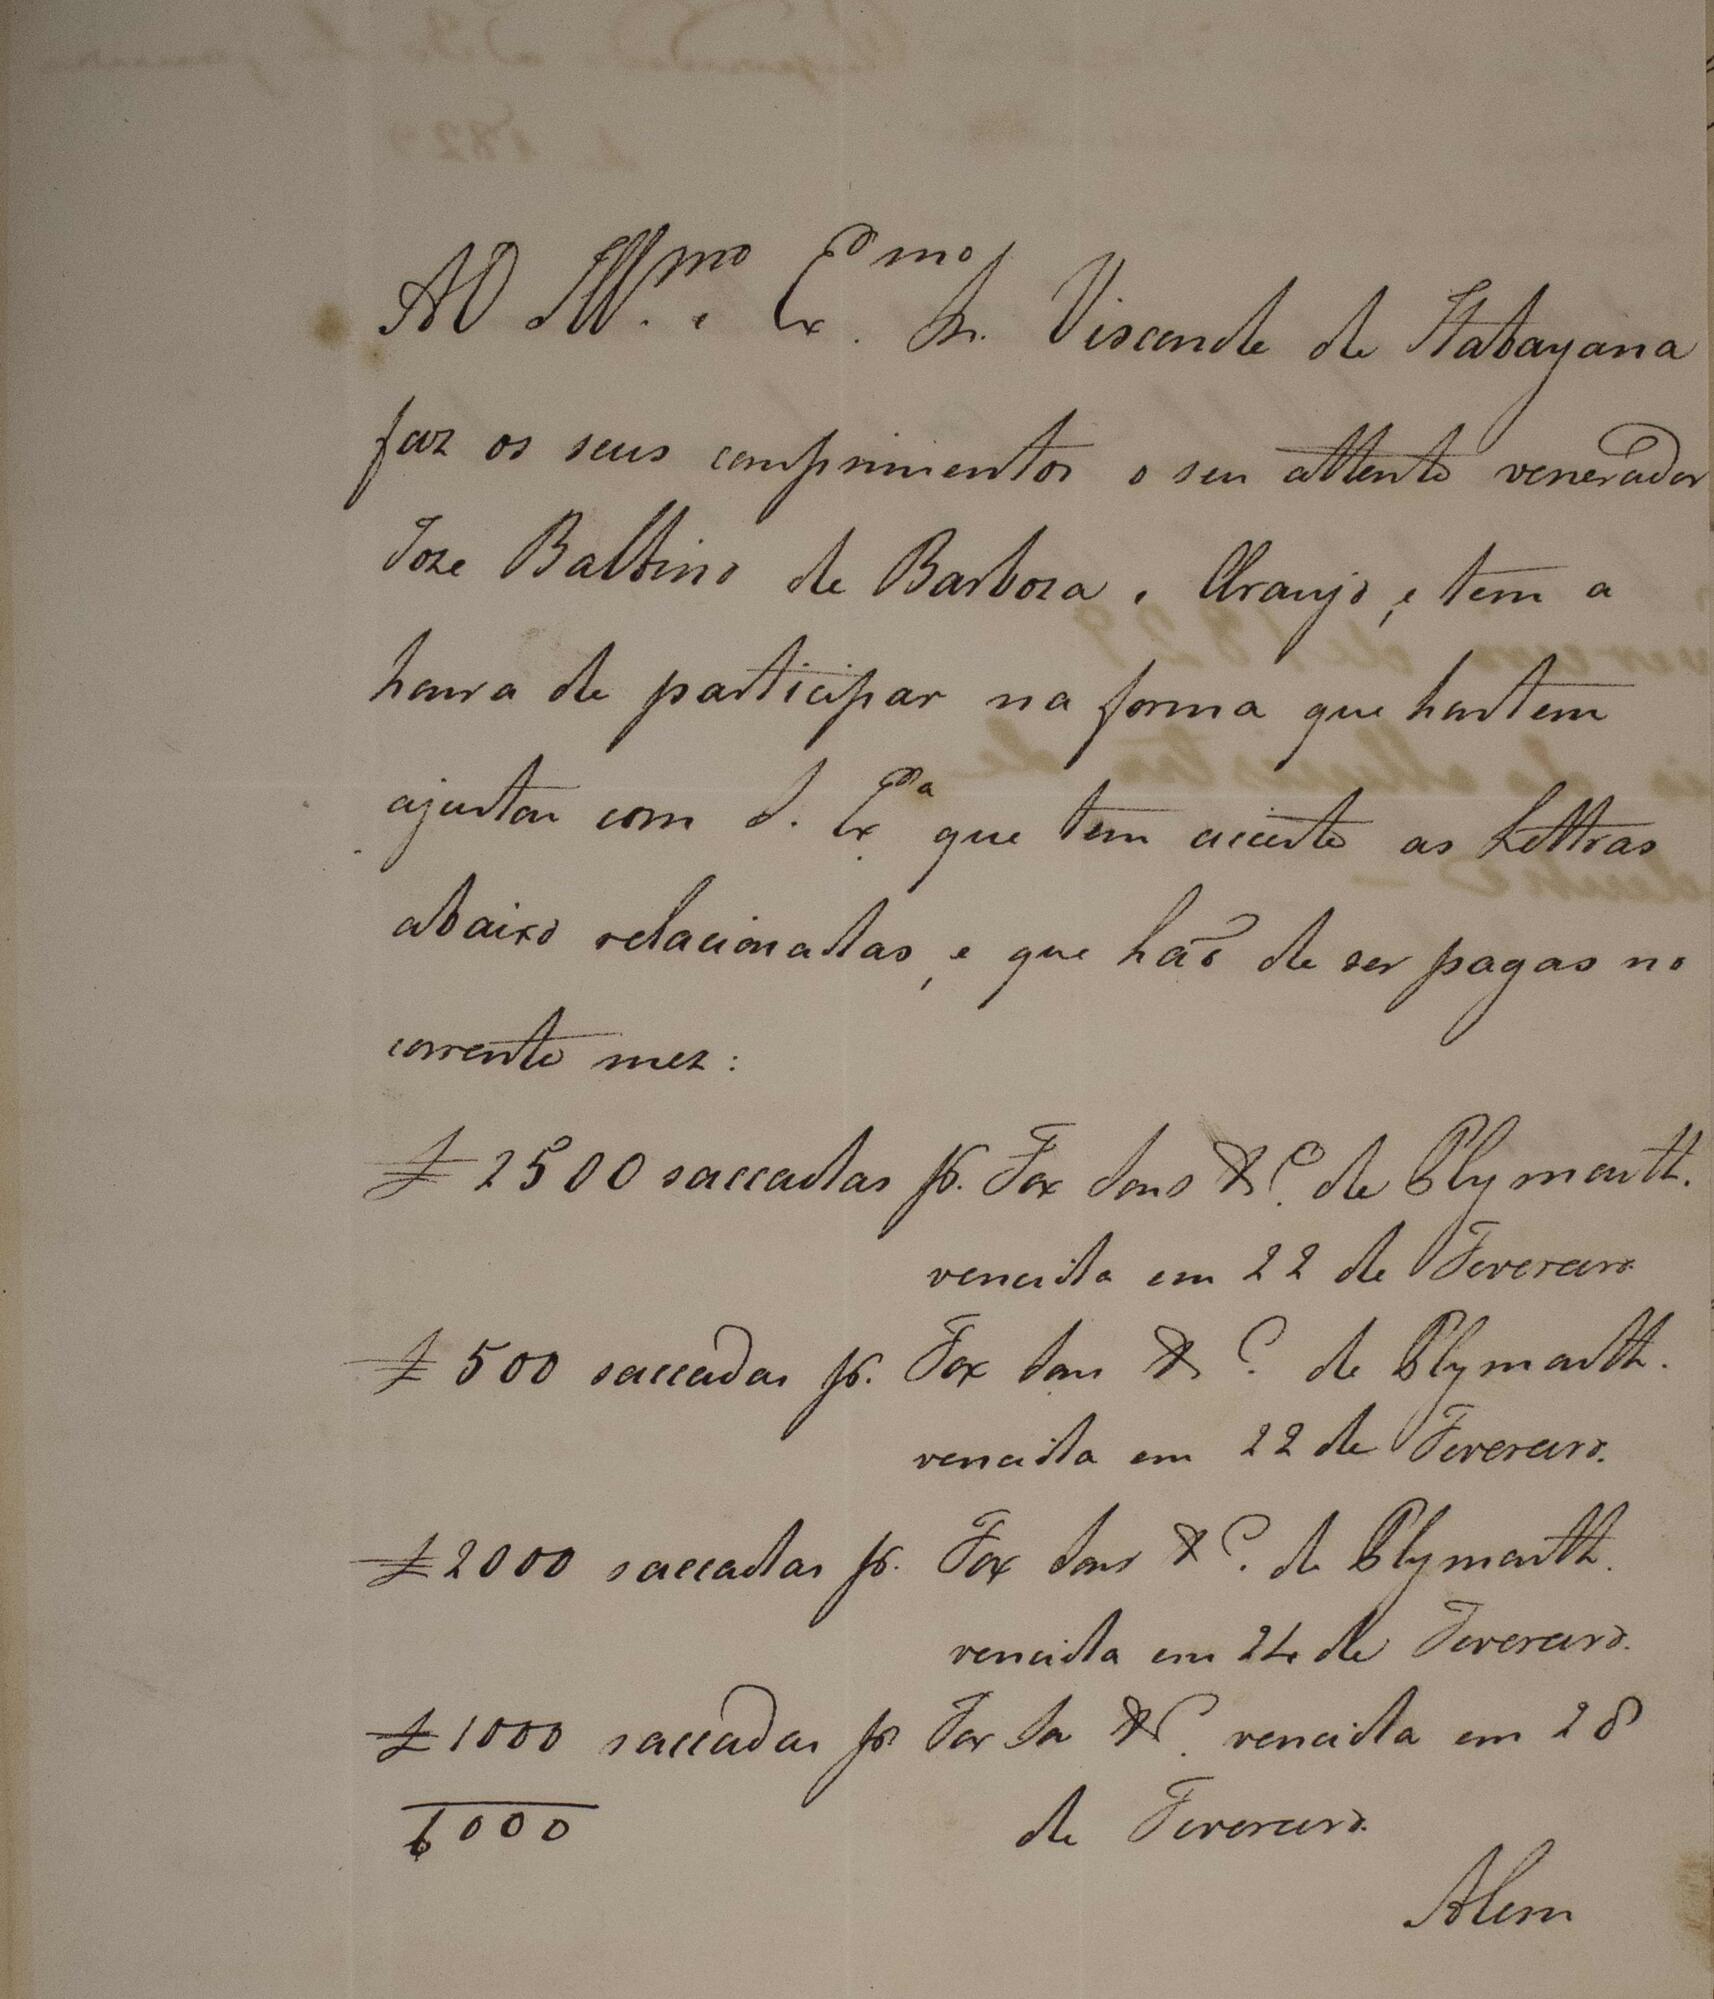 AO Illmo. e Exmo. Sr. Visconde de Itabayana
faz os seus comprimentos o seu attento venerador
Joze Balbino de Barboza e Araujo, e tem a
honra de participar na forma que hontem
ajustou com S. Exa que tem aceito as Lettras
abaixo relacionadas, e que hão de ser pagas no
corrente mez:
£ 2500 saccadas pr. Fox Sons & Co. de Plymouth.
vencida em 22 de Fevereiro
£ 500 saccadas pr. Fox Sons & C. de Plymouth.
vencida em 22 de Fevereiro.
£ 2000 saccadas pr. Fox Sons & C. de Plymouth.
vencida em 24 de Fevereiro.
£ 1000 saccadas pr Fox So & C. vencida em 28
6000 de Fevereiro.
Alem